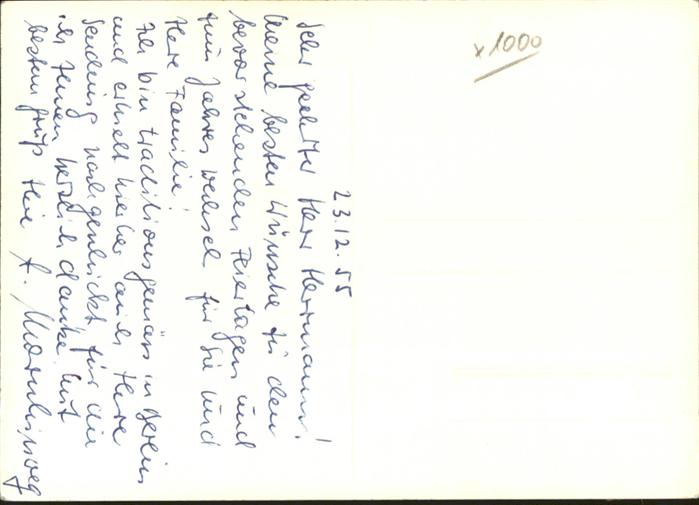 23.12.55
Sehr geehrter Herr Herrmann!
Meine besten Wünsche zu den
bevorstehenden Feiertagen und
zum Jahreswechsel für Sie und
Ihre Familie!
Ich bin traditionsgemäss in Berlin
und erhielt hierher auch Ihre
Sendung nachgeschickt, für die
ich Ihnen herzlich danke. Mit
bestem Gruß Ihre
x1000